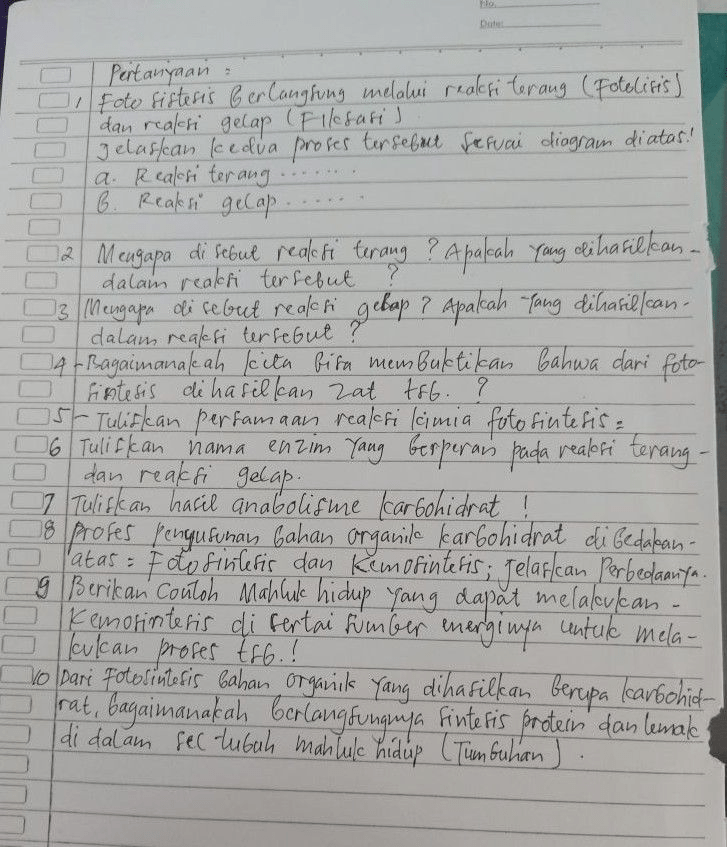 No.
Date:
Pertanyaan :
1 Foto sistesis Berlangsung melalui reaksi terang (Fotolisis)
dan reaksi gelap (Fiksasi)
Jelaskan kedua proses tersebut sesuai diagram diatas!
a. Reaksi terang .......
B. Reaksi gelap ......
2 Mengapa di sebut reaksi terang ? Apakah yang dihasilkan -
dalam reaksi tersebut ?
3 Mengapa di sebut reaksi gelap ? Apakah yang dihasilkan -
dalam reaksi tersebut ?
4 - Bagaimanakah kita Bisa memBuktikan Bahwa dari foto-
sintesis dihasilkan zat tsb. ?
5 - Tuliskan persamaan reaksi kimia fotosintesis :
6 Tuliskan nama enzim yang berperan pada reaksi terang -
dan reaksi gelap.
7 Tuliskan hasil anabolisme karbohidrat !
8 Proses Penyusunan Bahan organik karbohidrat diBedakan -
atas : Fotosintesis dan Kemosintesis; Jelaskan Perbedaannya.
9 Berikan Contoh Mahluk hidup yang dapat melakukan -
Kemosintesis di sertai sumber energinya untuk mela-
kukan proses tsb.!
10 Dari Fotosintesis Bahan organik yang dihasilkan Berupa karbohid-
rat, Bagaimanakah Berlangsungnya sintesis protein dan lemak
di dalam sel tubuh mahluk hidup (Tumbuhan).